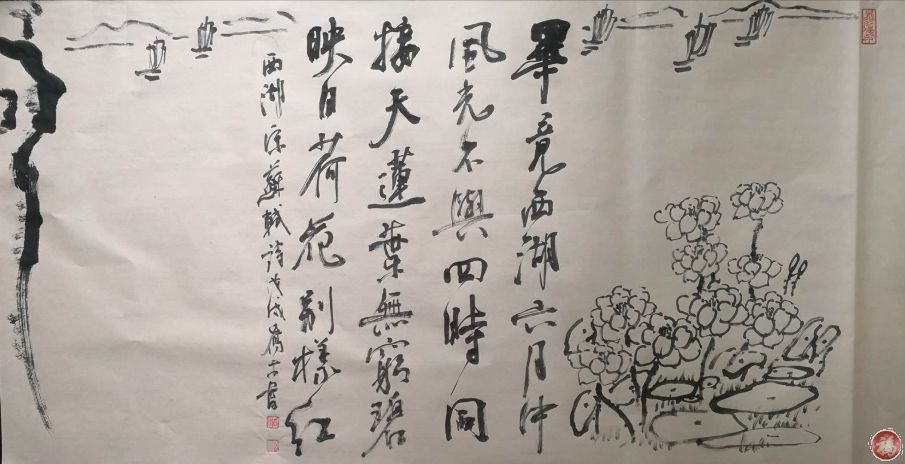 畢竟西湖六月中
風光不與四時同
接天蓮葉無窮碧
映日荷花別樣紅
西湖 宋蘇軾詩 戊戌
書
福